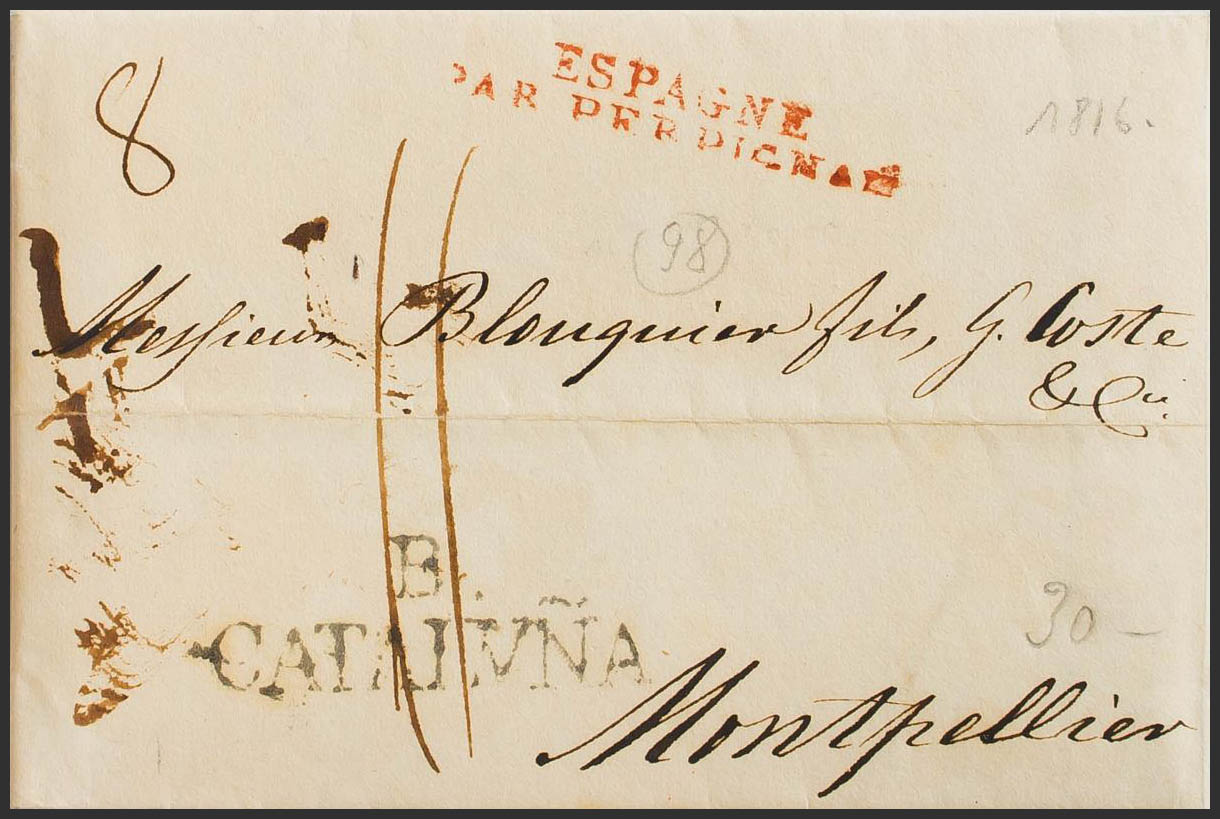 8
ESPAGNE
PAR PERPIGNAN
1816.
98
Messieurs Blouquier fils, G. Coste
& Cie.
B.
CATALUÑA
30-
Montpellier